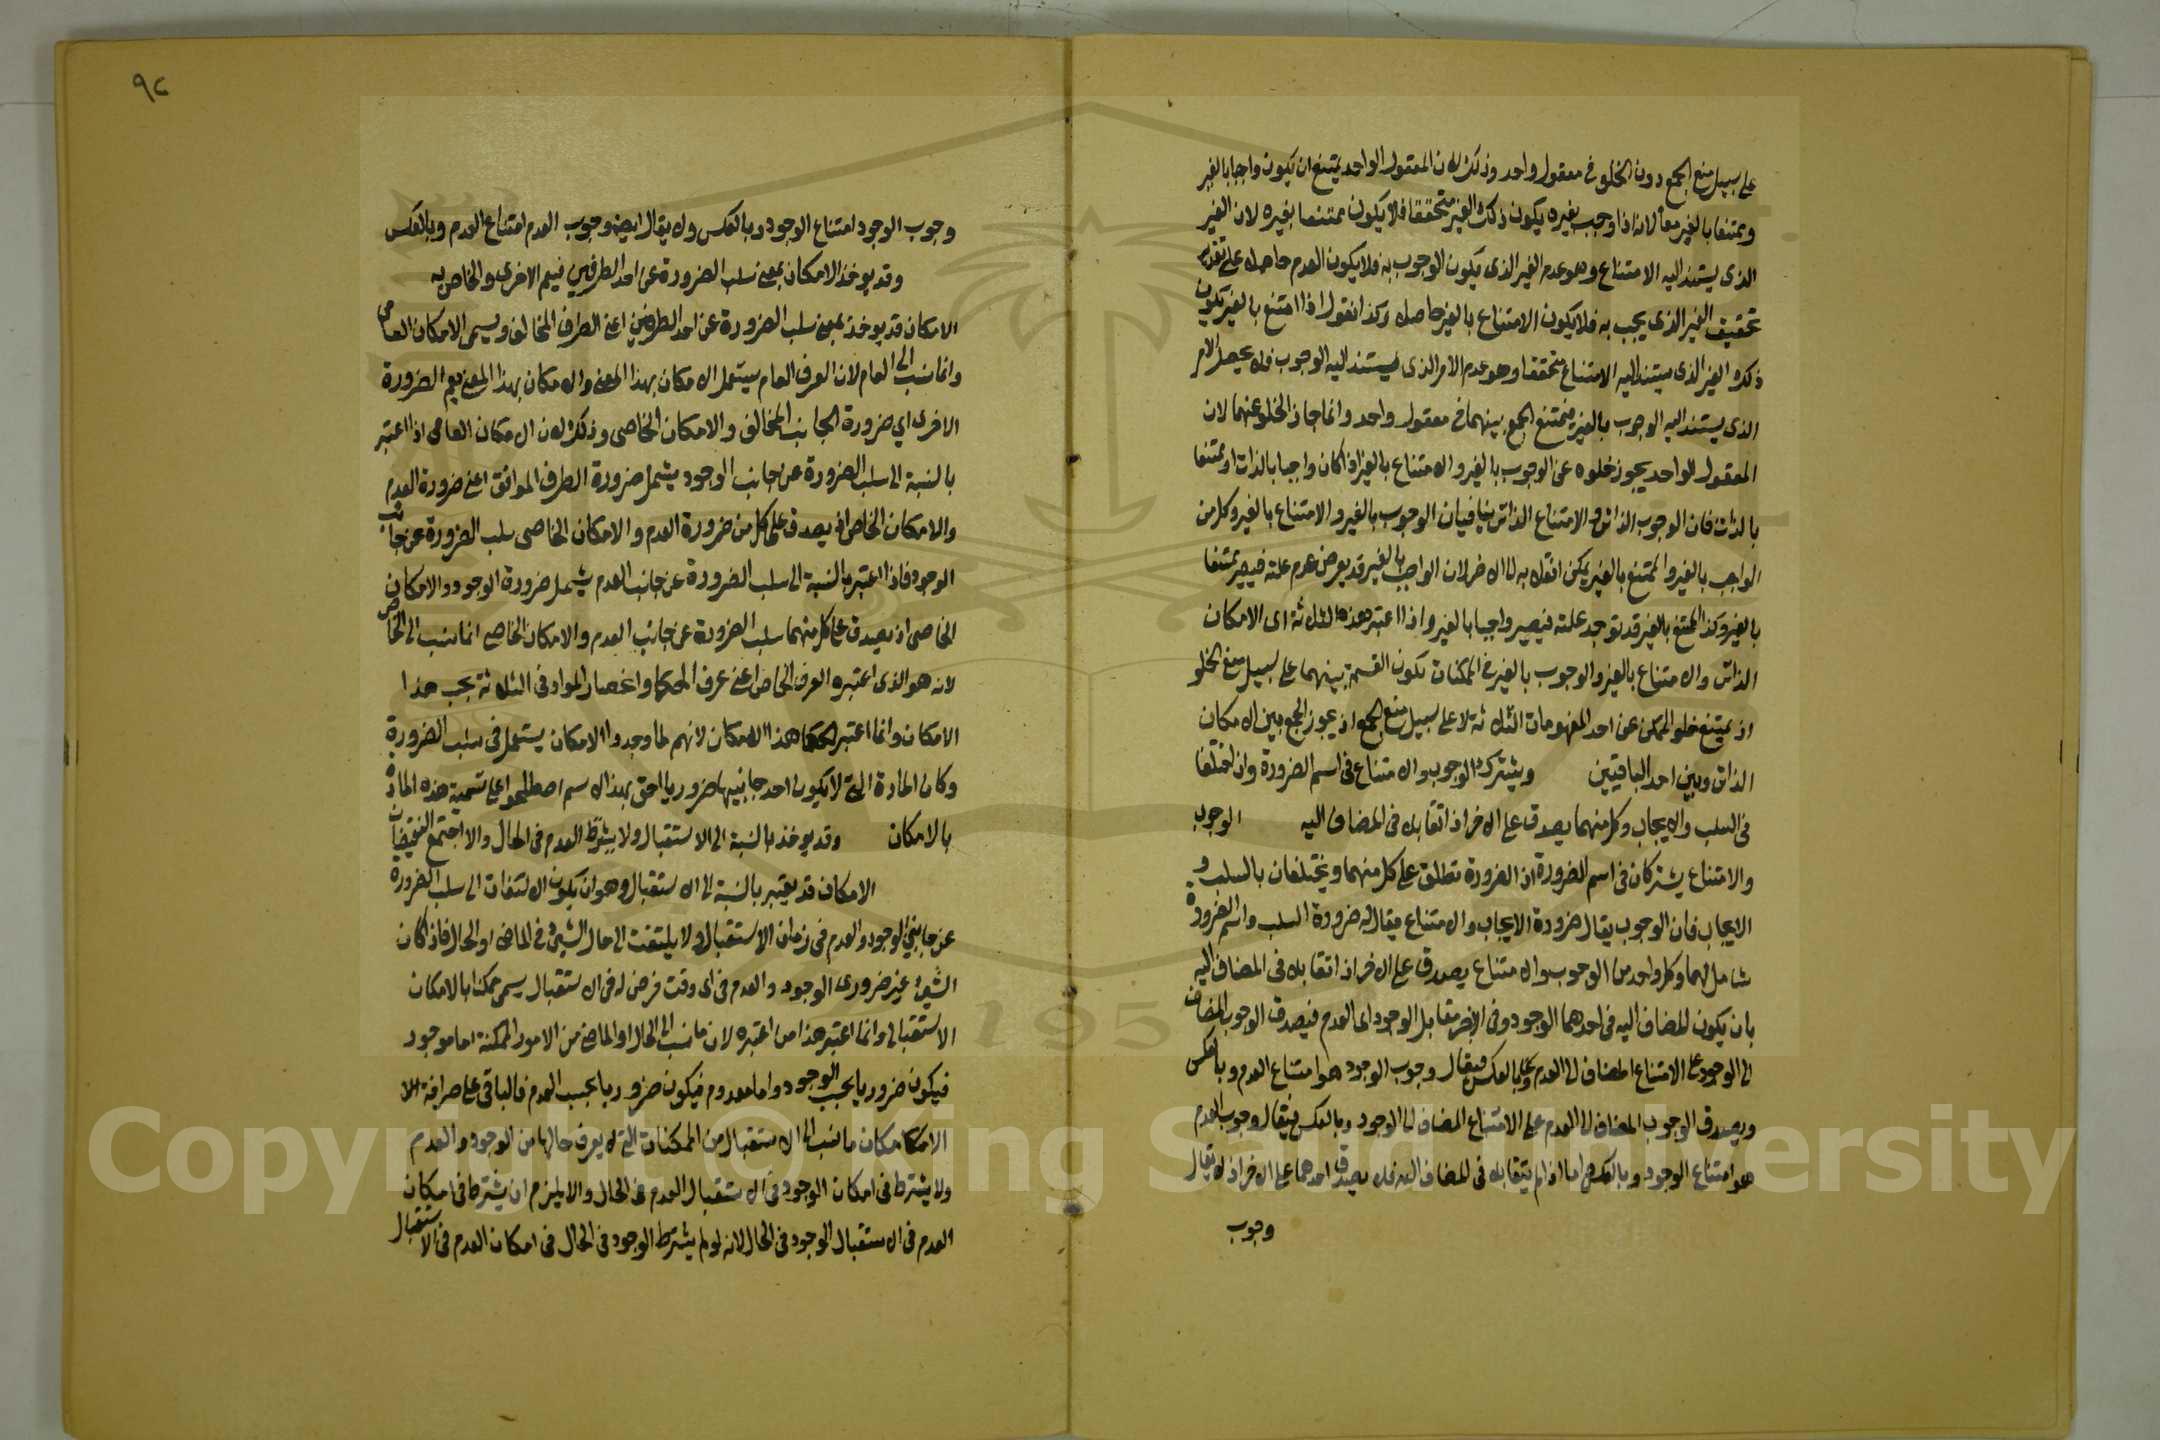 على سبيل منع الجمع دون الخلو في معقول واحد وذلك لان المعقول الواحد يمتنع ان يكون واجبا بالغير
وممتنعا بالغير معا لانه اذا وجب بغيره يكون ذلك الغير متحققا فلا يكون ممتنعا بغيره لان الغير
الذى يستند اليه الامتناع وهو عدم الغير الذى يكون الوجوب به فلا يكون العدم حاصلا على تقدير
تحقيق الغير الذى يجب به فلا يكون الامتناع بالغير حاصلا وكذا نقول اذا امتنع بالغير يكون
ذلك الغير الذى يستند اليه الامتناع متحققا وهو عدم الامر الذى يستند اليه الوجوب فلا يحصل الامر
الذى يستند اليه الوجوب بالغير فيمتنع الجمع بينهما في معقول واحد وانما جاز الخلو عنهما لان
المعقول الواحد يجوز خلوه عن الوجوب بالغير والامتناع بالغير اذا كان واجبا بالذات او ممتنعا
بالذات فان الوجوب الذاتي والامتناع الذاتي ينافيان الوجوب بالغير والامتناع بالغير وكل من
الواجب بالغير والممتنع بالغير يمكن انقلابه الى الاخر لان الواجب بالغير قد يعرض عدم علته فيصير ممتنعا
بالغير وكذا الممتنع بالغير قد توجد علته فيصير واجبا بالغير واذا اعتبر هذه الثلاثة اى الامكان
الذاتي والامتناع بالغير والوجوب بالغير في الممكنات تكون القسمة بينهما على سبيل منع الخلو
اذ يمتنع خلو الممكن عن احد المفهومات الثلاثة لا على سبيل منع الجمع اذ يجوز الجمع بين الامكان
الذاتي وبين احد الباقيين ويشترك الوجوب والامتناع في اسم الضرورة وان اختلفا
في السلب والايجاب وكل منهما يصدق على الاخر اذا تقابلا في المضاف اليه الوجوب
والامتناع يشتركان في اسم الضرورة اذ الضرورة تطلق على كل منهما ويختلفان بالسلب و
الايجاب فان الوجوب يقال ضرورة الايجاب والامتناع يقال له ضرورة السلب واسم الضرورة
شامل لهما وكل واحد من الوجوب والامتناع يصدق على الاخر اذا تقابلا في المضاف اليه
بان يكون المضاف اليه في احدهما الوجود وفي الاخر مقابل الوجود اى العدم فيصدق الوجوب المضاف
الى الوجود على الامتناع المضاف الى العدم وبالعكس فيقال وجوب الوجود هو امتناع العدم وبالعكس
ويصدق الوجوب المضاف الى العدم على الامتناع المضاف الى الوجود وبالعكس فيقال وجوب العدم
هو امتناع الوجود وبالعكس اما اذا لم يتقابلا في المضاف اليه فلا يصدق احدهما على الاخر اذ لا يقال
وجوب
٩٢
وجوب الوجود امتناع الوجود وبالعكس ولا يقال ايضا وجوب العدم امتناع العدم وبالعكس
وقد يوخذ الامكان بمعنى سلب الضرورة عن احد الطرفين فيعم الاخرى والخاص به
الامكان قد يوخذ بمعنى سلب الضرورة عن احد الطرفين اعنى الطرف المخالف ويسمى الامكان العامى
وانما نسب الى العام لان العرف العام يستعمل الامكان بهذا المعنى والامكان بهذا المعنى يعم الضرورة
الاخرى اي ضرورة الجانب المخالف والامكان الخاصى وذلك لان الامكان العامى اذا اعتبر
بالنسبة الى سلب الضرورة عن جانب الوجود يشمل ضرورة الطرف الموافق اعنى ضرورة العدم
والامكان الخاص اذ يصدق على كل من ضرورة العدم والامكان الخاصى سلب الضرورة عن جانب
الوجود فاذا اعتبر بالنسبة الى سلب الضرورة عن جانب العدم يشمل ضرورة الوجود والامكان
الخاصى اذ يصدق على كل منهما سلب الضرورة عن جانب العدم والامكان الخاصى انما نسب الى الخاص
لانه هو الذى اعتبره العرف الخاص اعنى عرف الحكما وانحصار المواد في الثلاثة بحسب هذا
الامكان وانما اعتبر الحكما هذا الامكان لانهم لما وجدوا الامكان يستعمل في سلب الضرورة
وكان المادة التى لا يكون احد جانبيها ضروريا احق بهذا الاسم اصطلحوا على تسمية هذه المادة
بالامكان وقد يوخذ بالنسبة الى الاستقبال ولا يشترط العدم في الحال والا اجتمع النقيضان
الامكان قد يعتبر بالنسبة الى الاستقبال وهو ان يكون الالتفات الى سلب الضرورة
عن جانبي الوجود والعدم في زمان الاستقبال ولا يلتفت الى حال الشيئ في الماضى او الحال فاذا كان
الشيئ غير ضرورى الوجود والعدم في اى وقت فرض له في الاستقبال يسمى ممكنا بالامكان
الاستقبالى وانما اعتبر هذا من اعتبره لان ما نسب الى الحال او الماضى من الامور الممكنة اما موجود
فيكون ضروريا بحسب الوجود واما معدوم فيكون ضروريا بحسب العدم فالباقى على صرافة الا
الامكا مكان ما نسب الى الاستقبال من الممكنات التى لا يعرف حالها من الوجود والعدم
ولا يشترط في امكان الوجود في الاستقبال العدم في الحال والا يلزم ان يشترط في امكان
العدم في الاستقبال الوجود في الحال لانه لو لم يشترط الوجود في الحال في امكان العدم في الاستقبال
Copyright © King Saud University
195